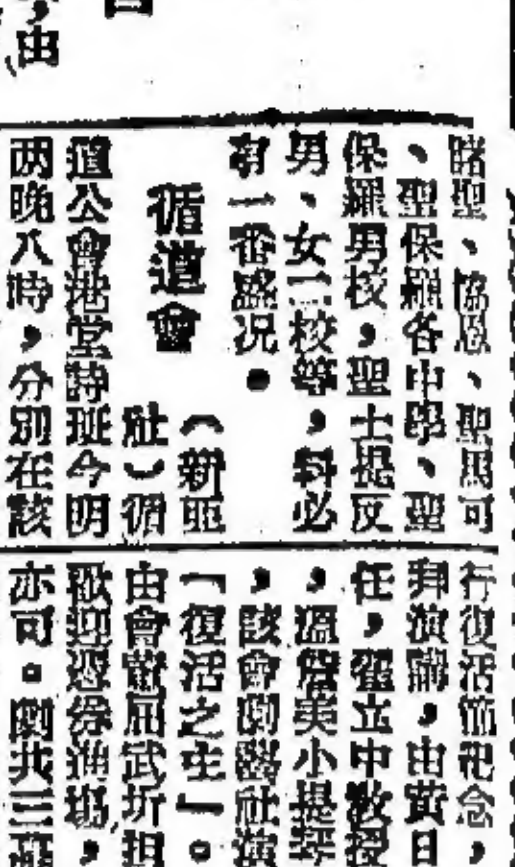 ，由
諸聖、協恩、聖馬可
、聖保羅各中學、聖
保羅男校，聖士提反
男、女二校等，料必
有一番盛况。
循道會
（新亞
社）循
道公會港堂詩班今明
两晚八時，分別在該
行復活節祀念，
拜演講，由黃日
任，翟立中敎授
，溫詹美小提琴
，該會劇藝社演
「復活之主」。
由會督屈武圻担
歡迎憑券進塲，
亦可。劇共三幕